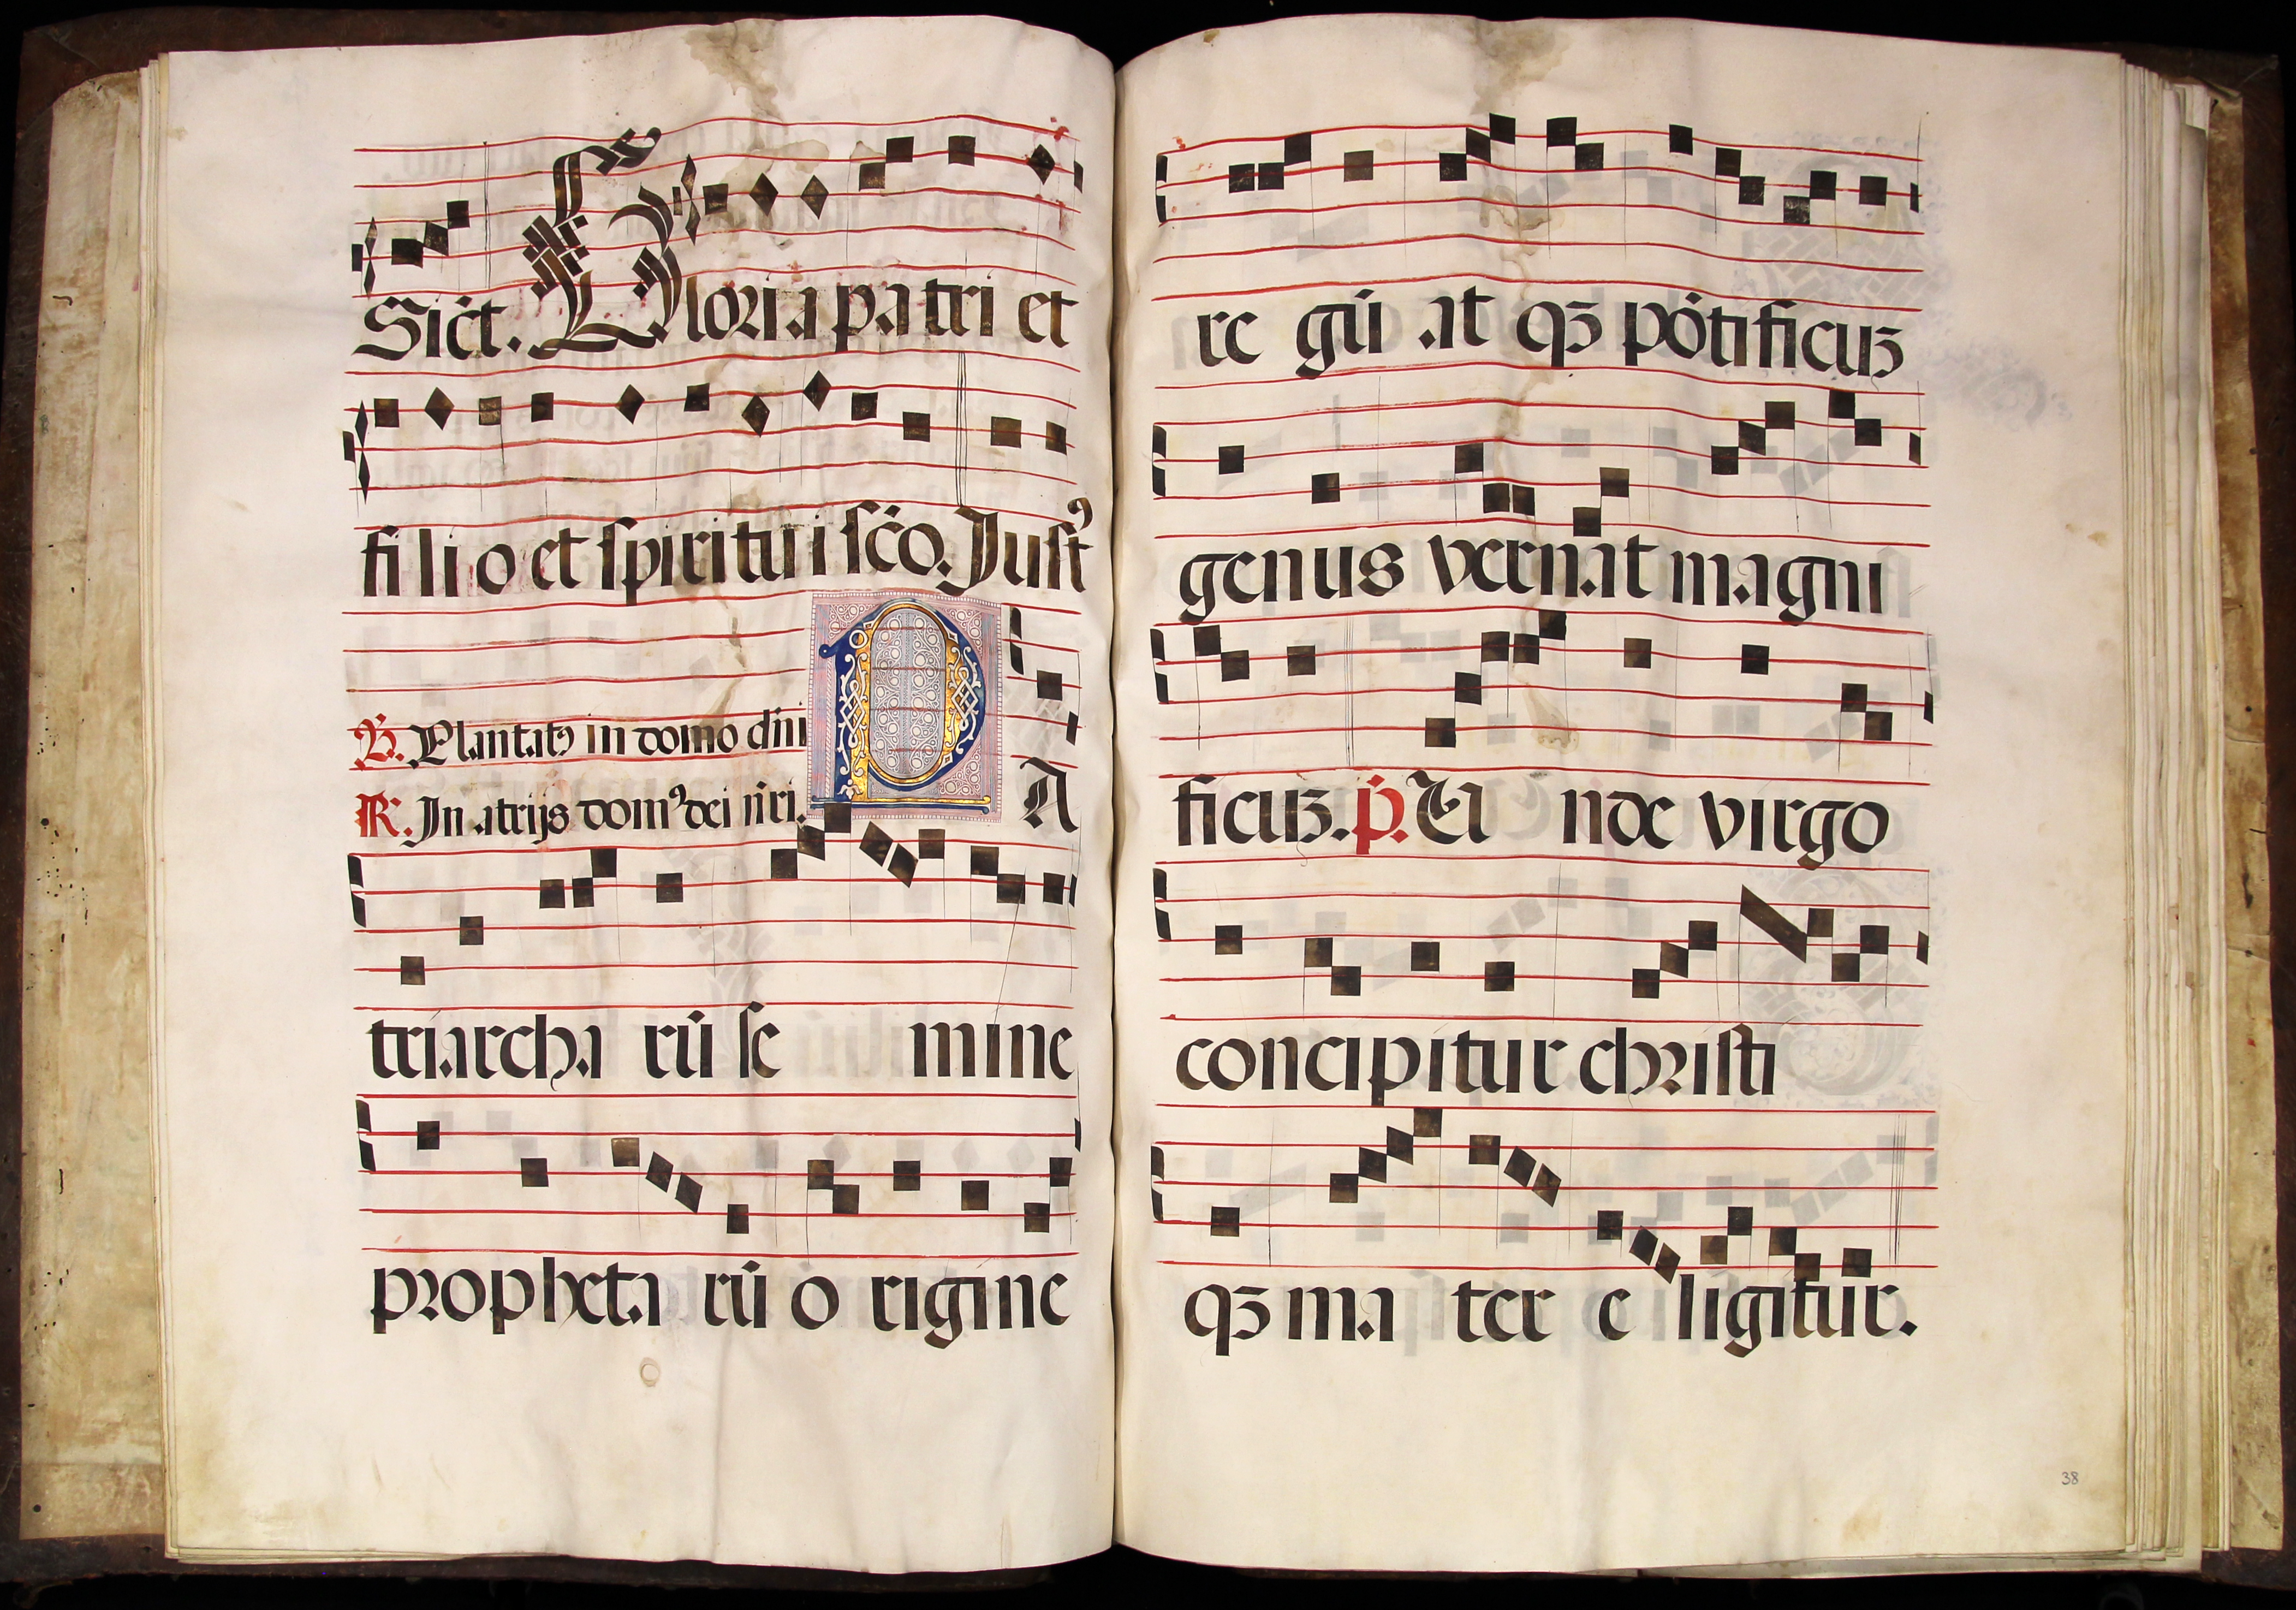 Sičt. Gloria patri et
filio et ſpiritui ſčo. Juſtꝰ
℣. Plantatꝰ in domo dñi
PA
℟. In atrijs domꝰ dei nři.
triarcharū ſemine
prophetarū origine
regū atqꝫ pōtificuꝫ
genus vernat magni
ficuꝫ. p̄. Unde virgo
concipitur chriſti
qꝫ mater eligitur.
38